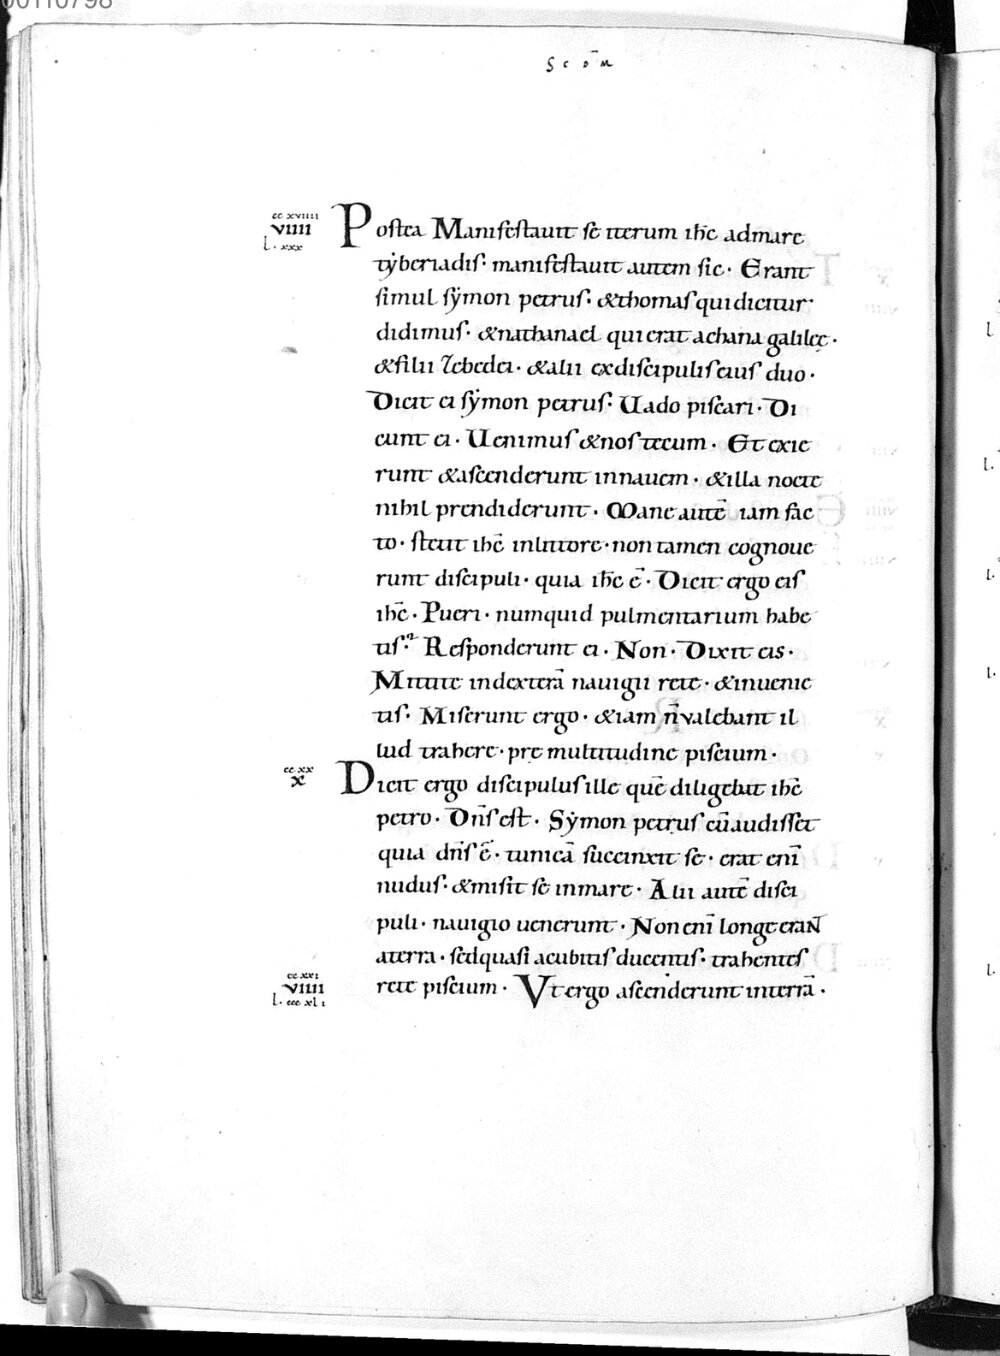 00110798
Scd̄m
cc xviiii
viiii
l. xxx
Postea Manifestauit se iterum ihc̄ admare
tẏberiadis· manifestauit autem sic· Erant
simul sẏmon petrus· &thomas qui dicitur
didimus· &nathanael qui erat achana galileę·
&filii Zebedei· &alii exdiscipulis eius duo·
Dicit ei sẏmon petrus· Uado piscari· Di
cunt ei· Uenimus &nos tecum· Et exie
runt &ascenderunt innauem· &illa nocte
nihil prendiderunt· Mane autē iam fac
to· stetit ihc̄ inlitore· non tamen cognoue
runt discipuli· quia ihc̄ ē· Dicit ergo eis
ihc̄· Pueri· numquid pulmentarium habe
tis? Responderunt ei· Non· Dixit eis·
Mittite indexterā nauigii rete· &inuenie
tis· Miserunt ergo· &iam n̄ valebant il
lud trahere· prę multitudine piscium·
cc xx
x
Dicit ergo discipulus ille quē diligebat ihc̄
petro· Dn̄s est· Sẏmon petrus cū audisset
quia dn̄s ē· tunicā succinxit se· erat enī
nudus· &misit se inmare· Alii autē disci
puli· nauigio uenerunt· Non enī longe erant
aterra· sed quasi acubitis ducentis· trahentes
cc xxi
viiii
l. ccc xli
rete piscium· Vt ergo ascenderunt interrā·